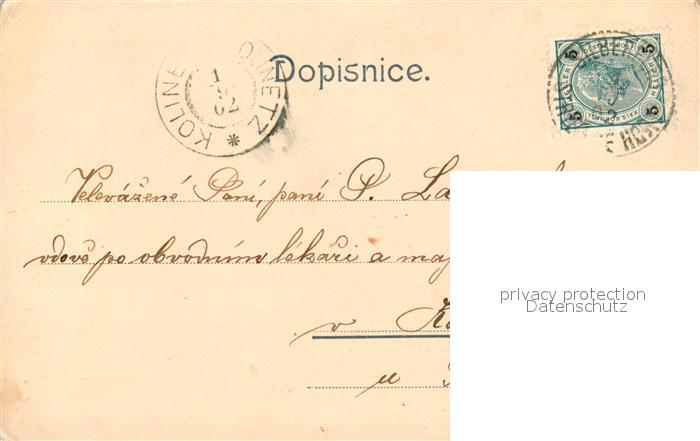 KOLINEC KOLINETZ
1
02
Dopisnice.
5 5 5 5
Velevážené Paní, paní P. La
vdově po obvodním lékaři a maj
v K
u
privacy protection
Datenschutz